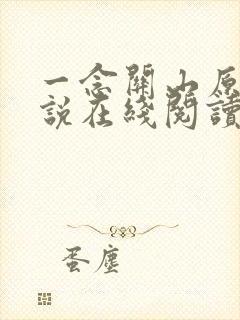 一念關山原
說在綫閱讀
蛋塵